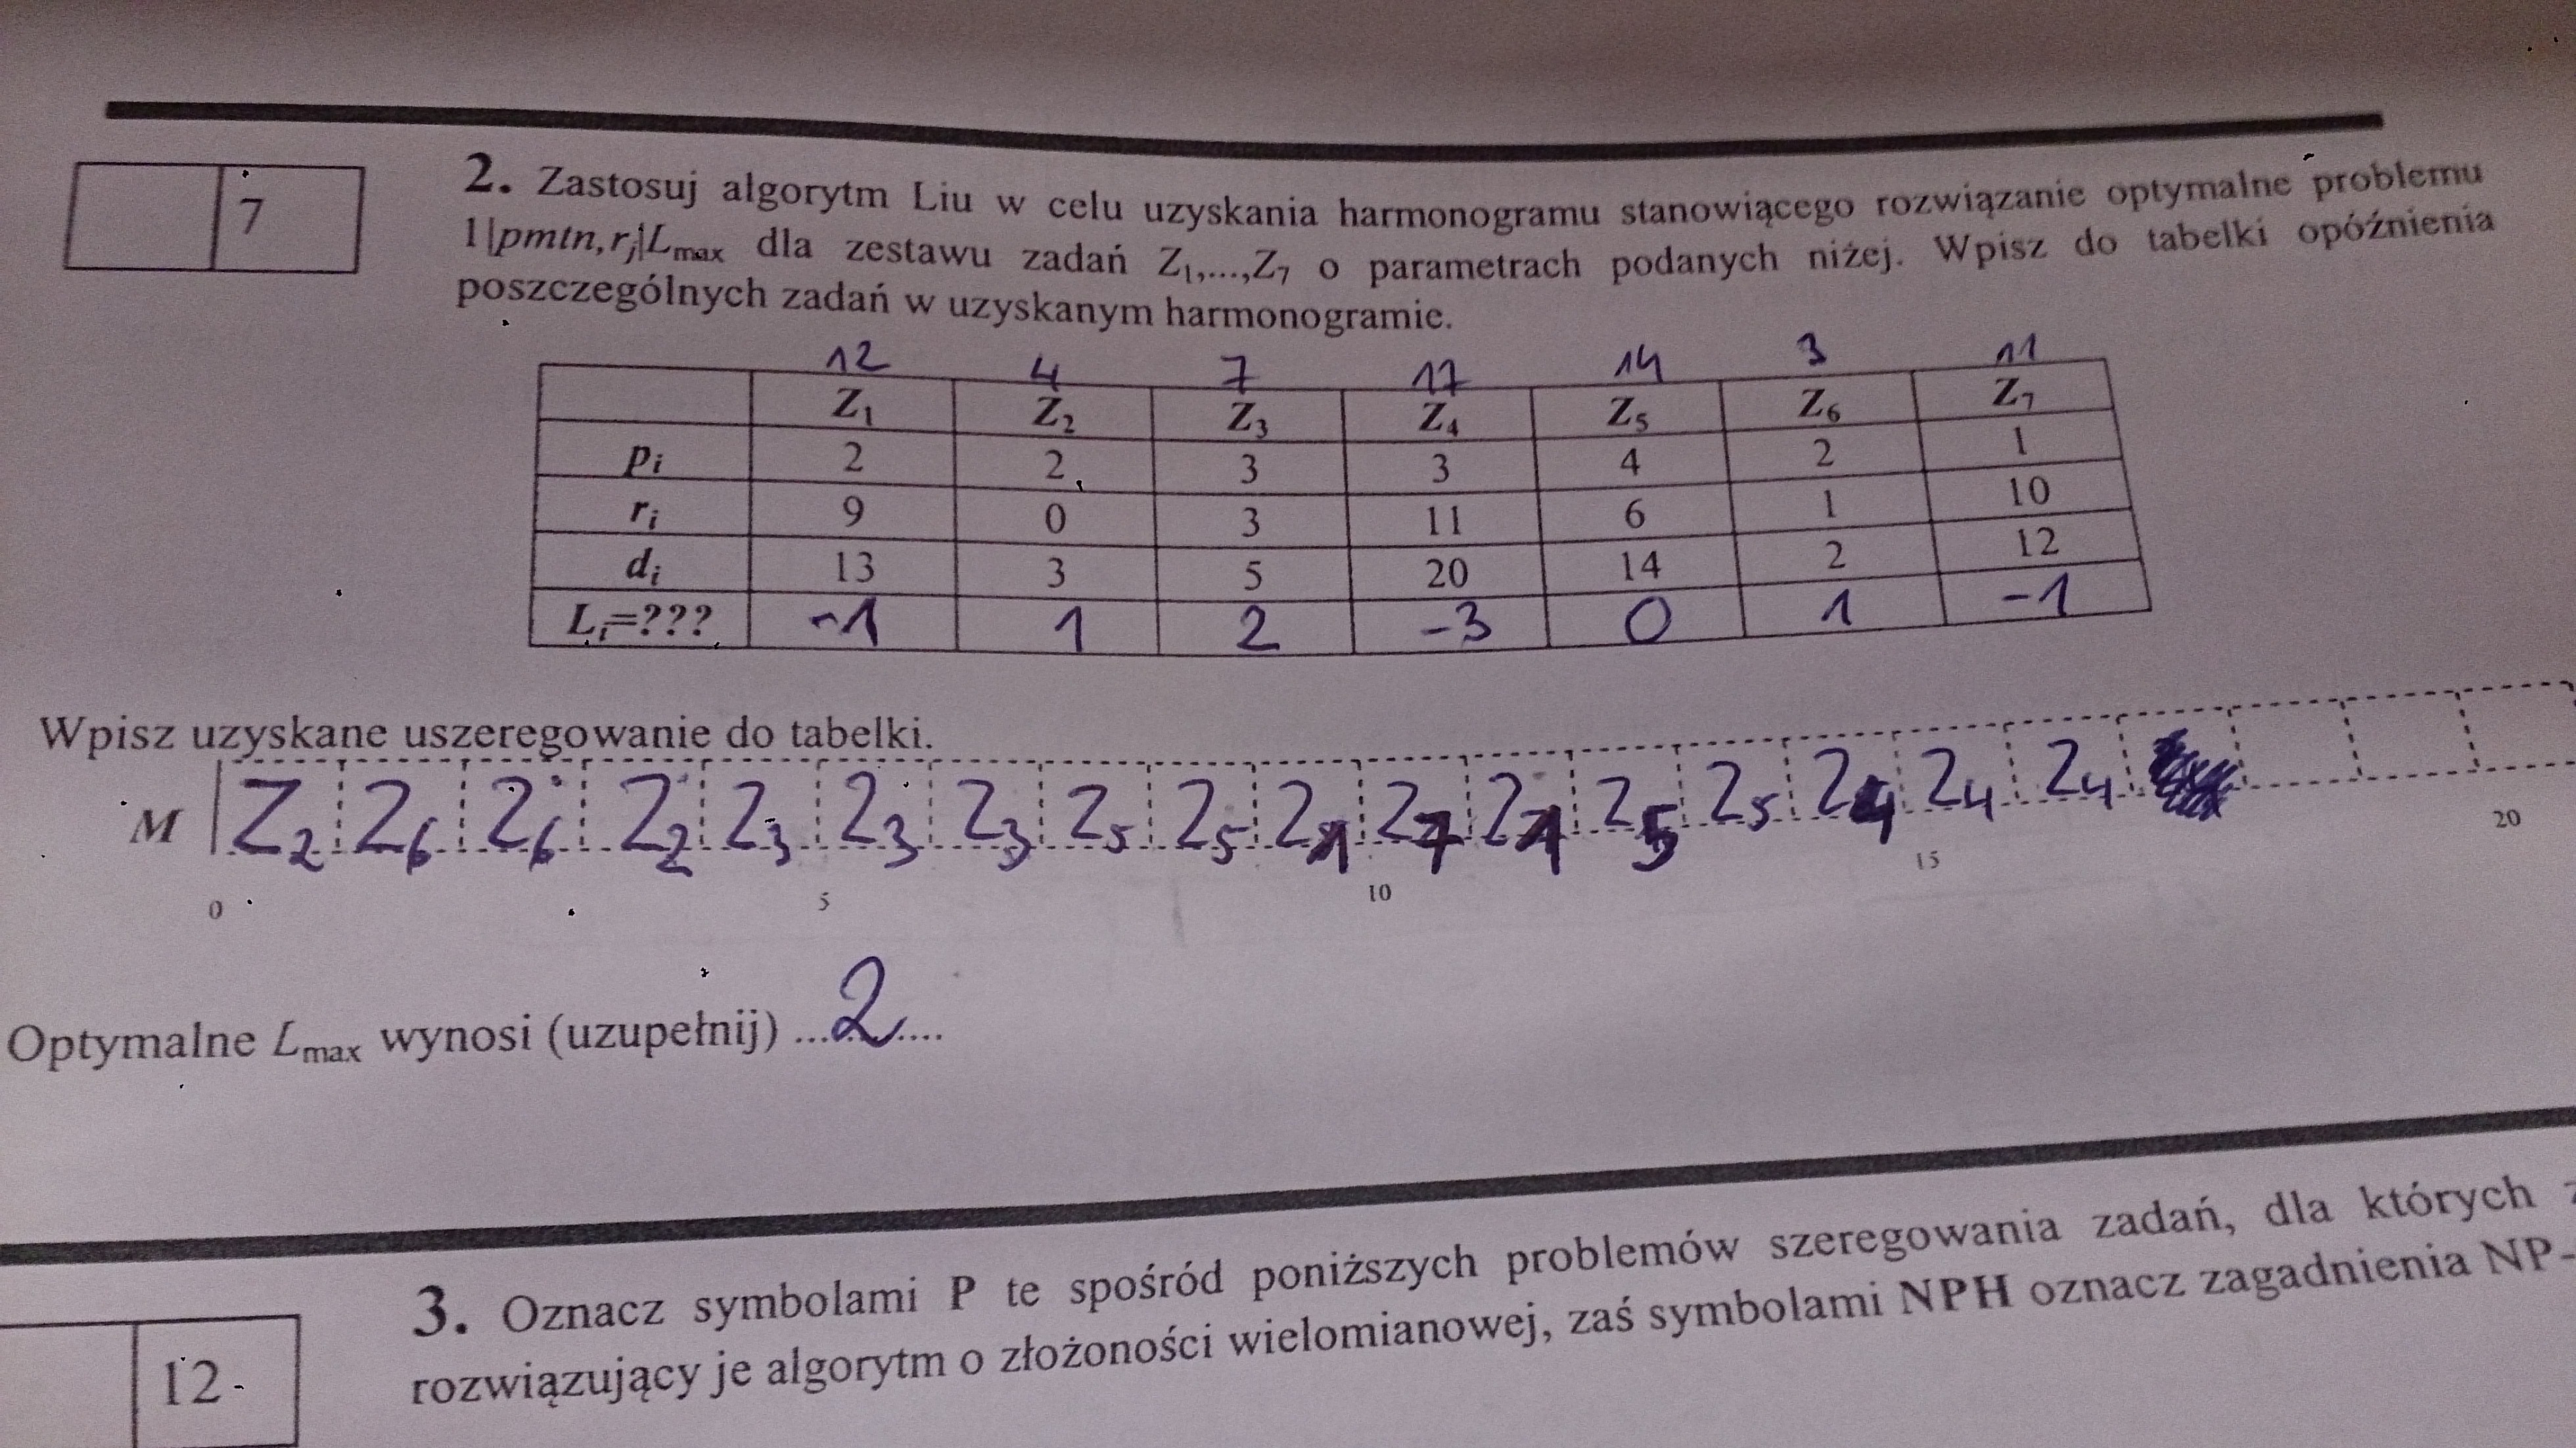 7
2. Zastosuj algorytm Liu w celu uzyskania harmonogramu stanowiącego rozwiązanie optymalne problemu
1|pmtn,rj|Lmax dla zestawu zadań Z1,...,Z7 o parametrach podanych niżej. Wpisz do tabelki opóźnienia
poszczególnych zadań w uzyskanym harmonogramie.
12 4 7 17 14 3 11
Z1 Z2 Z3 Z4 Z5 Z6 Z7
pi 2 2 3 3 4 2 1
ri 9 0 3 11 6 1 10
di 13 3 5 20 14 2 12
Li=??? -1 1 2 -3 0 1 -1
Wpisz uzyskane uszeregowanie do tabelki.
M Z2 Z6 Z6 Z2 Z3 Z3 Z3 Z5 Z5 Z1 Z7 Z1 Z5 Z5 Z4 Z4 Z4
0 5 10 15 20
Optymalne Lmax wynosi (uzupełnij) ...2....
12
3. Oznacz symbolami P te spośród poniższych problemów szeregowania zadań, dla których
rozwiązujący je algorytm o złożoności wielomianowej, zaś symbolami NPH oznacz zagadnienia NP-